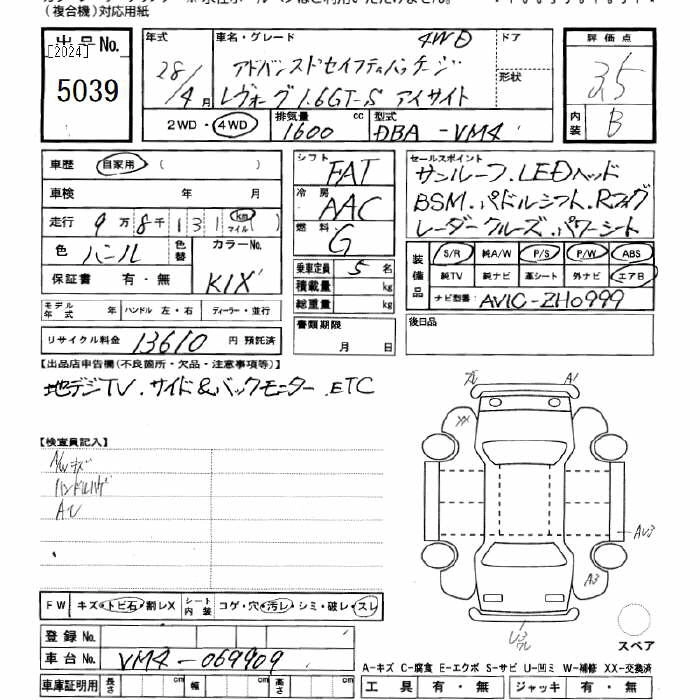 (複合機)対応用紙
出品No. [2024]
5039
年式 28/4月
車名・グレード 4WD
アドバンスドセイフティパッケージ
レヴォーグ1.6GT-S アイサイト
ドア
形状
評価点 3.5
内装 B
2WD・4WD
排気量 1600 cc
型式 DBA-VM4
車歴 自家用 ( )
車検 年 月
走行 9万8千131 km マイル ( )
色 パール 色替 カラーNo. K1X
保証書 有・無
モデル年式 年 ハンドル 左・右 ディーラー・並行
リサイクル料金 13610 円 預託済
シフト FAT
冷房 AAC
燃料 G
乗車定員 5 名
積載量 kg
総重量 kg
書類期限
月 日
セールスポイント
サンルーフ.LEDヘッド
BSM.パドルシフト.Rフォグ
レーダークルーズ.パワーシート
装備品 S/R 純A/W P/S P/W ABS
純TV 純ナビ 革シート 外ナビ エアB
ナビ型番: AVIC-ZH0999
後日品
【出品店申告欄(不良箇所・欠品・注意事項等)】
地デジTV.サイド&バックモニター.ETC
【検査員記入】
A/Wキズ
FW キズ・トビ石・割レX シート内装 コゲ・穴・汚レ・シミ・破レ・スレ
登録No.
車台No. VM4-069909
車庫証明用 長さ cm 幅 cm 高さ cm
A1
AU3
A3
スペア
A-キズ C-腐食 E-エクボ S-サビ U-凹ミ W-補修 XX-交換済
工具 有・無 ジャッキ 有・無